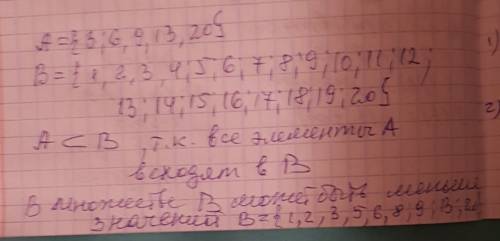 A={3;6,9,13,20}
B={1,2,3,4;5,6;7;8;9;10;11;12;
13;14;15,16;17;18;19;20}
A⊂B, т.к. все элементы A
входят в B
В множестве B может быть меньше
значений B={1,2,3,5,6,8,9;13;20
1)
2)